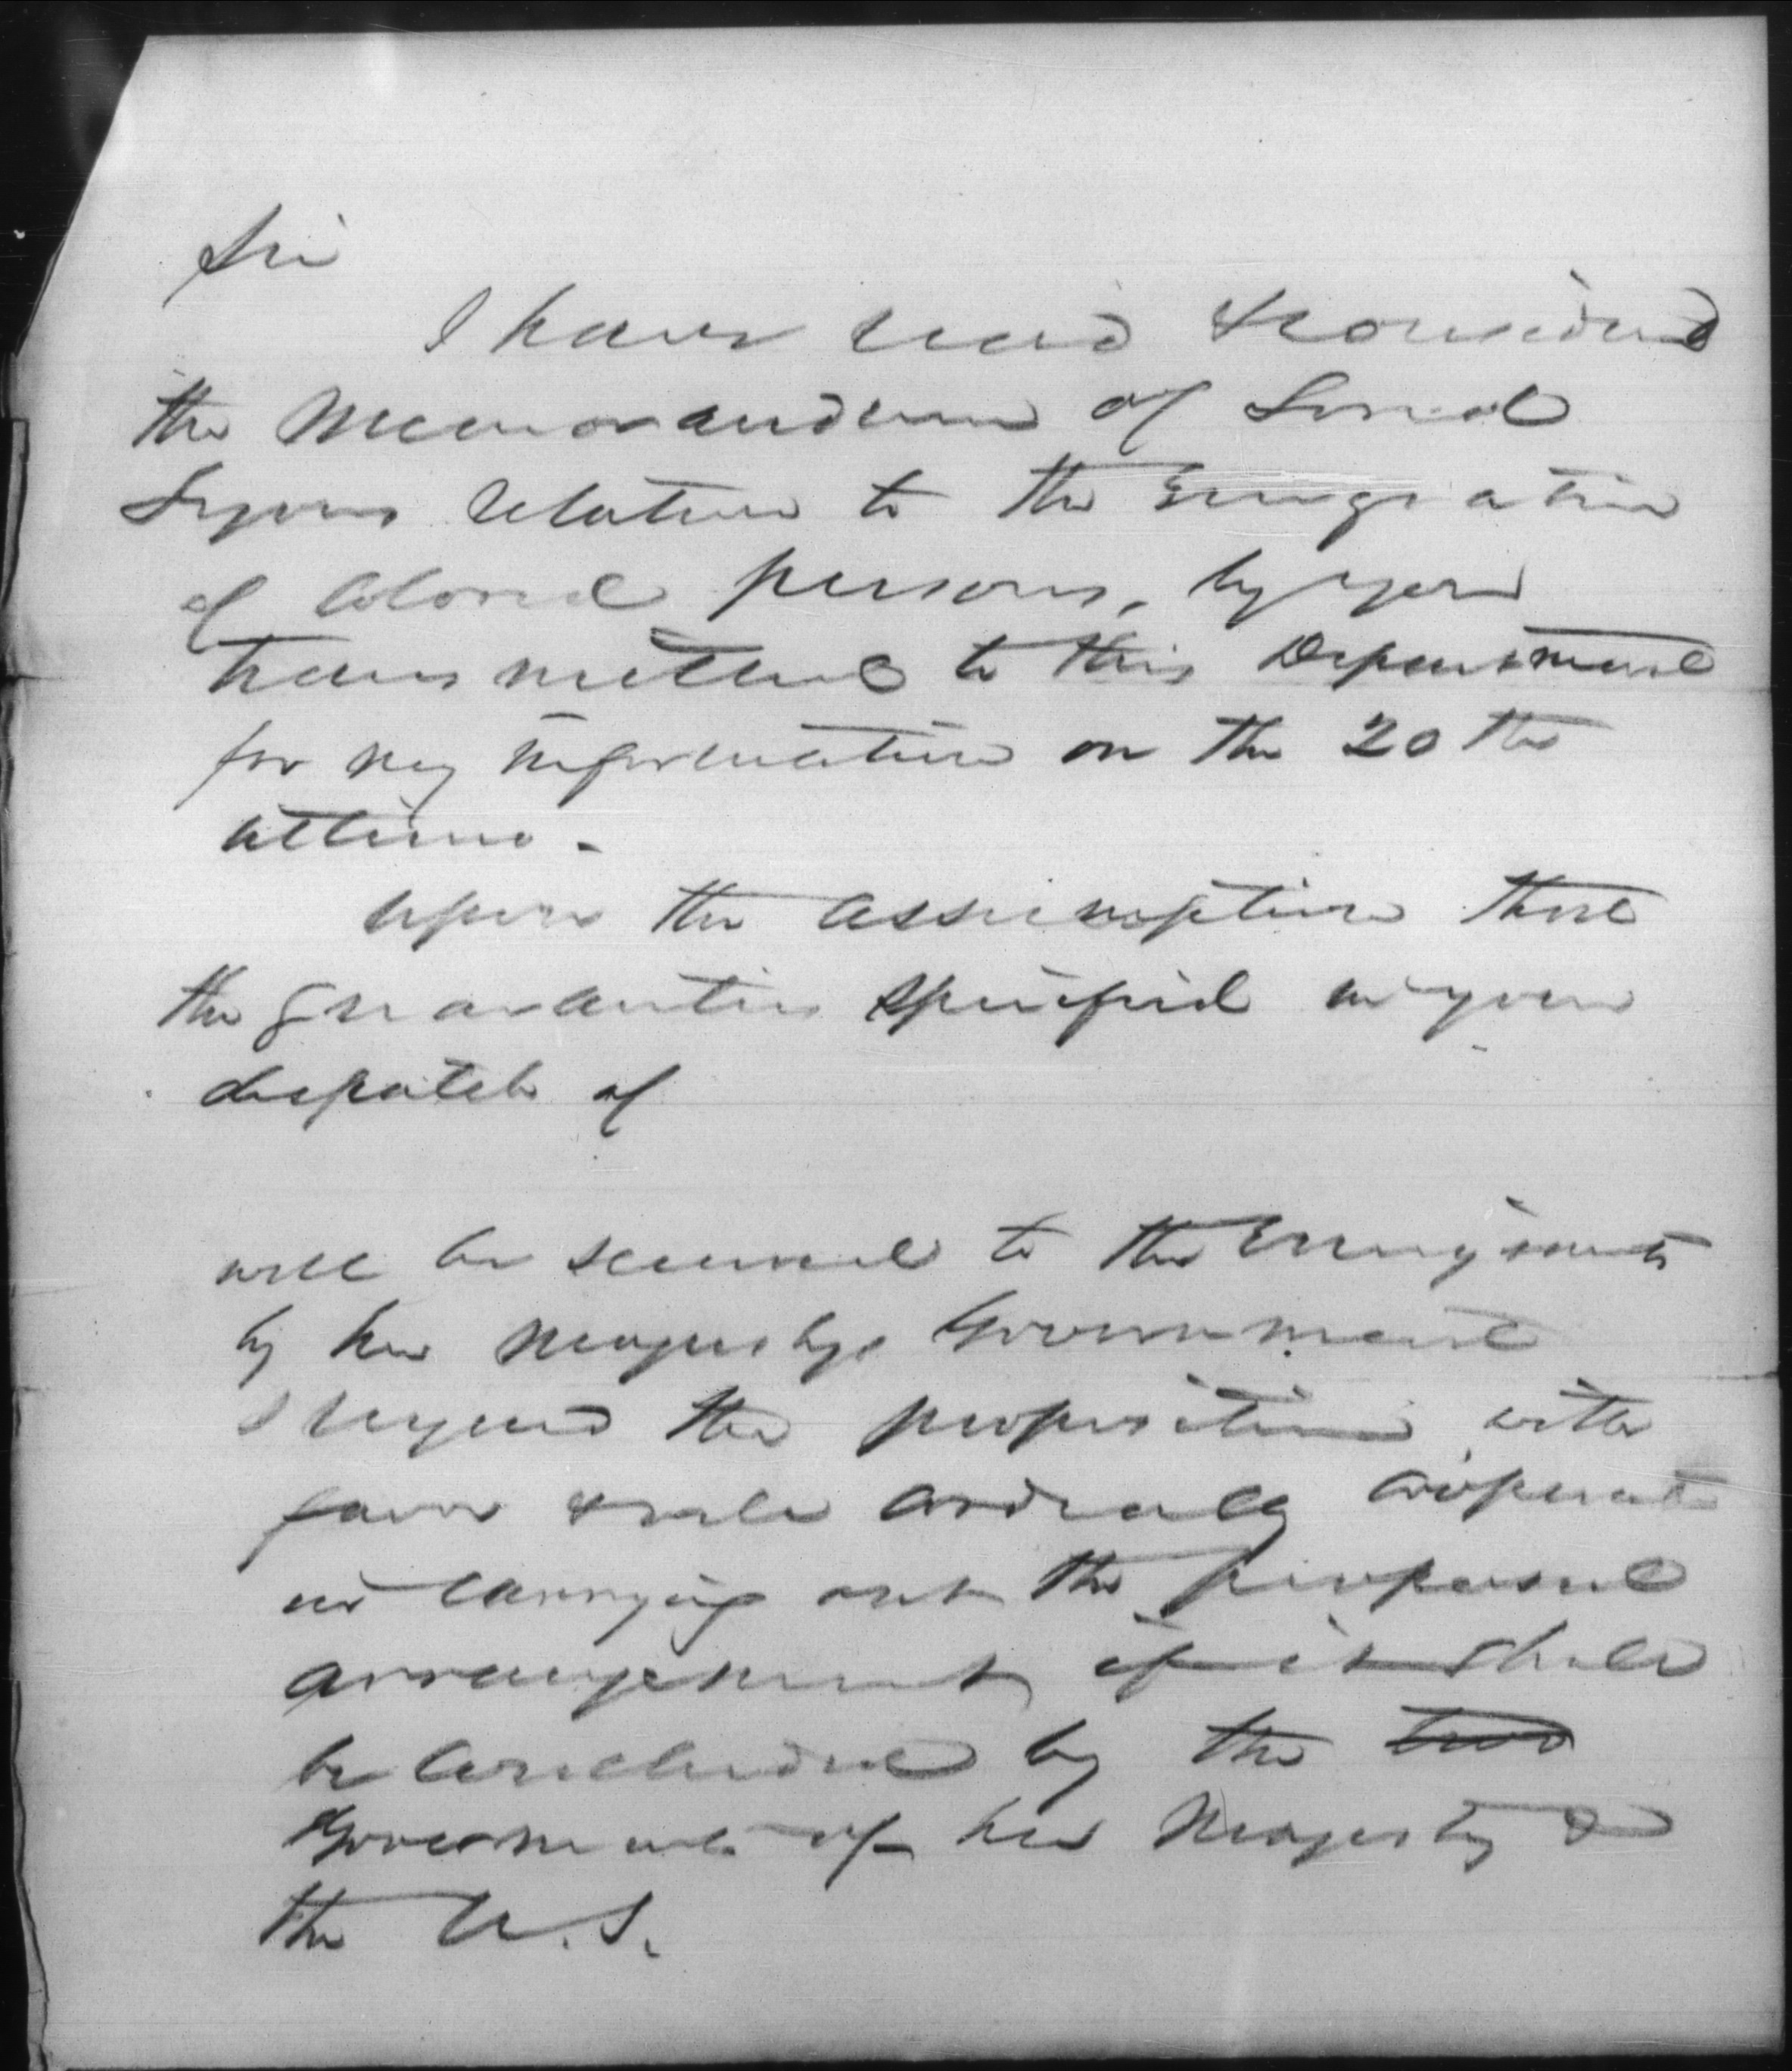 Sir
I have read & considered
the Memorandum of Lord
Lyons relative to the Emigration
of Colored persons, by you
transmitted to this Department
for my information on the 20th
ultimo -
Upon the assumption that
the guaranties specified in your
dispatch of
will be secured to the Emigrants
by her Majestys Government
I regard the proposition with
favor & will cordially cooperate
in carrying out the proposed
arrangement, if it shall
be concluded by the two
Governments of her Majesty &
the U.S.